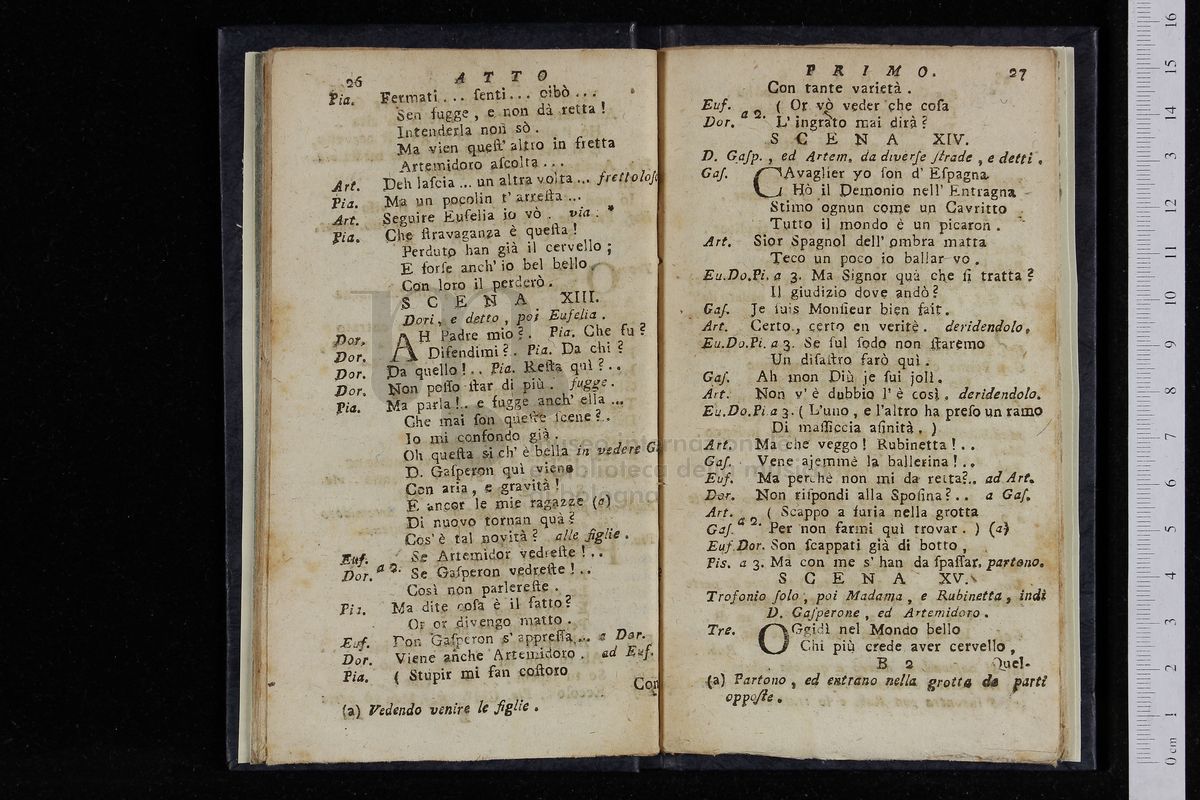 26 ATTO
Pia. Fermati . . . ſenti . . . oibò . . .
Sen fugge , e non dà retta !
Intenderla non sò .
Ma vien queſt' altro in fretta
Artemidoro aſcolta . . .
Art. Deh laſcia ... un altra volta ... frettoloſo
Pia. Ma un pocolin t' arreſta ...
Art. Seguire Eufelia io vò . via .
Pia. Che ſtravaganza è queſta !
Perduto han già il cervello ;
E forſe anch' io bel bello
Con loro il perderò .
SCENA XIII.
Dori , e detto , poi Eufelia .
Dor. AH Padre mio ? . Pia. Che fu ?
Dor. Difendimi ? . Pia. Da chi ?
Dor. Da quello ! . . Pia. Reſta quì ? . .
Dor. Non poſſo ſtar di più . fugge .
Pia. Ma parla ! . . e fugge anch' ella ...
Che mai ſon queſte ſcene ? .
Io mi confondo già .
Oh queſta si ch' è bella in vedere
D. Gaſperon quì viene
Con aria , e gravità !
E ancor le mie ragazze (a)
Di nuovo tornan quà ?
Cos' è tal novità ? alle figlie .
Euf. Se Artemidor vedreſte ! . .
Dor. a 2. Se Gaſperon vedreſte ! . .
Così non parlereſte .
Pia. Ma dite coſa è il fatto ?
Or or divengo matto .
Euf. Don Gaſperon s' appreſſa ... a Dor.
Dor. Viene anche Artemidoro . ad Euf.
Pia. ( Stupir mi fan coſtoro
Con
(a) Vedendo venire le figlie .
PRIMO. 27
Con tante varietà .
Euf. ( Or vò veder che coſa
Dor. a 2. L' ingrato mai dirà ?
SCENA XIV.
D. Gaſp. , ed Artem. da diverſe ſtrade , e detti .
Gaſ. CAvaglier yo ſon d' Eſpagna
Hò il Demonio nell' Entragna
Stimo ognun come un Cavritto
Tutto il mondo è un picaron .
Art. Sior Spagnol dell' ombra matta
Teco un poco io ballar vo .
Eu.Do.Pi. a 3. Ma Signor quà che ſi tratta ?
Il giudizio dove andò ?
Gaſ. Je ſuis Monſieur bien fait .
Art. Certo , certo en veritè . deridendolo .
Eu.Do.Pi. a 3. Se ſul ſodo non ſtaremo
Un diſaſtro farò quì .
Gaſ. Ah mon Diù je ſui joli .
Art. Non v' è dubbio l' è così . deridendolo.
Eu.Do.Pi a 3. ( L'uno , e l'altro ha preſo un ramo
Di maſſiccia aſinità . )
Art. Ma che veggo ! Rubinetta ! . .
Gaſ. Vene ajemmè la ballerina ! . .
Euf. Ma perchè non mi da retta ? . . ad Art.
Dor. Non riſpondi alla Spoſina ? . . a Gaſ.
Art. ( Scappo a furia nella grotta
Gaſ. a 2. Per non farmi quì trovar . ) (a)
Euf.Dor. Son ſcappati già di botto ,
Pis. a 3. Ma con me s' han da ſpaſſar. partono.
SCENA XV.
Trofonio ſolo , poi Madama , e Rubinetta , indi
D. Gaſperone , ed Artemidoro .
Tre. OGgidì nel Mondo bello
Chi più crede aver cervello ,
B 2 Quel-
(a) Partono , ed entrano nella grotta da parti
oppoſte .